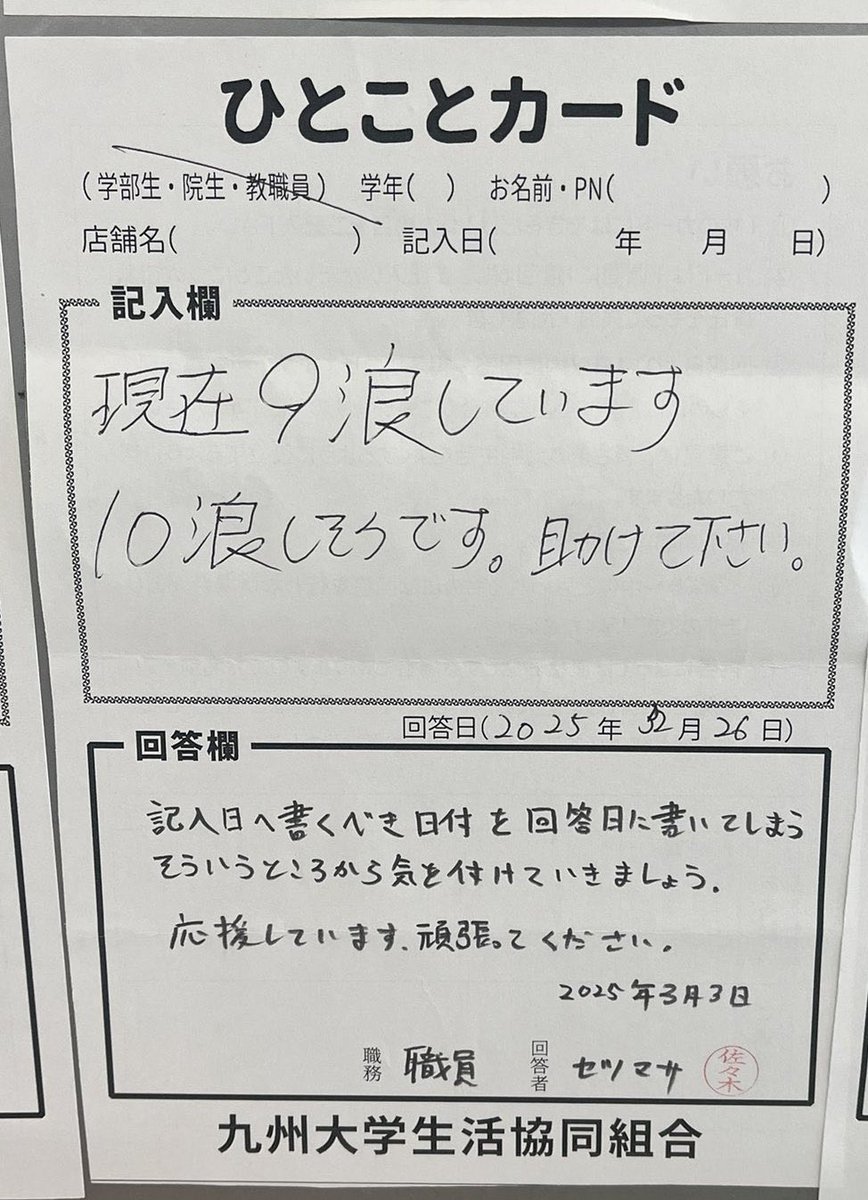 ひとことカード
(学部生・院生・教職員) 学年( ) お名前・PN( )
店舗名( ) 記入日( 年 月 日)
記入欄
現在9浪しています
10浪しそうです。助けて下さい。
回答日(2025年2月26日)
回答欄
記入日へ書くべき日付を回答日に書いてしまう
そういうところから気を付けていきましょう。
応援しています、頑張ってください。
2025年3月3日
職務 職員 回答者 セツマサ 佐々木
九州大学生活協同組合